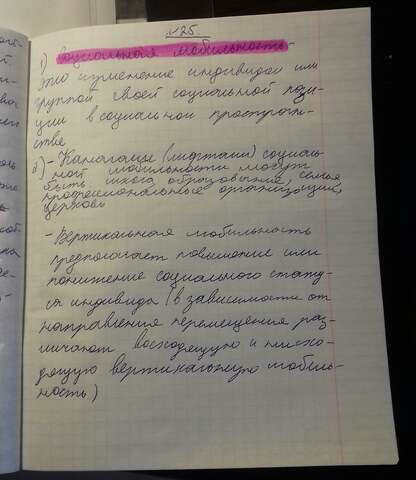 №25.
1) Социальная мобильность-
это изменение индивидом или
группой своей социальной пози-
ции в социальном простран-
стве
2) - Каналами (лифтами) социаль-
ной мобильности могут
быть школа, образование, семья
профессиональные организации,
церковь
- Вертикальная мобильность
предполагает повышение или
понижение социального стату-
са индивида (в зависимости от
направления перемещения раз-
личают восходящую и нисхо-
дящую вертикальную мобиль-
ность)